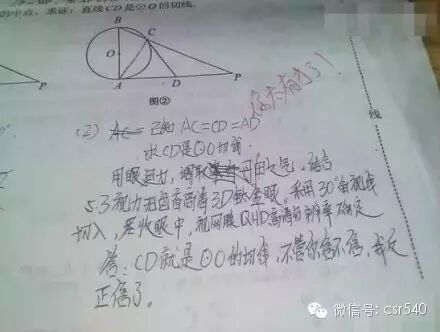 的中点，求证：直线CD是⊙O的切线.
B
C
O
A
D
P
P
图②
你太有才了！
线
(2) 已知 AC=CD=AD
求CD是⊙O切线
用眼运力，丹田之气，结合
5.3视力和 3D 眼，采用30°角视线
切入，在眼中，视网膜QHD高清分辨率确定
答：CD就是⊙O的切线，不管你信不信，我反
正信了。
微信号: csr540